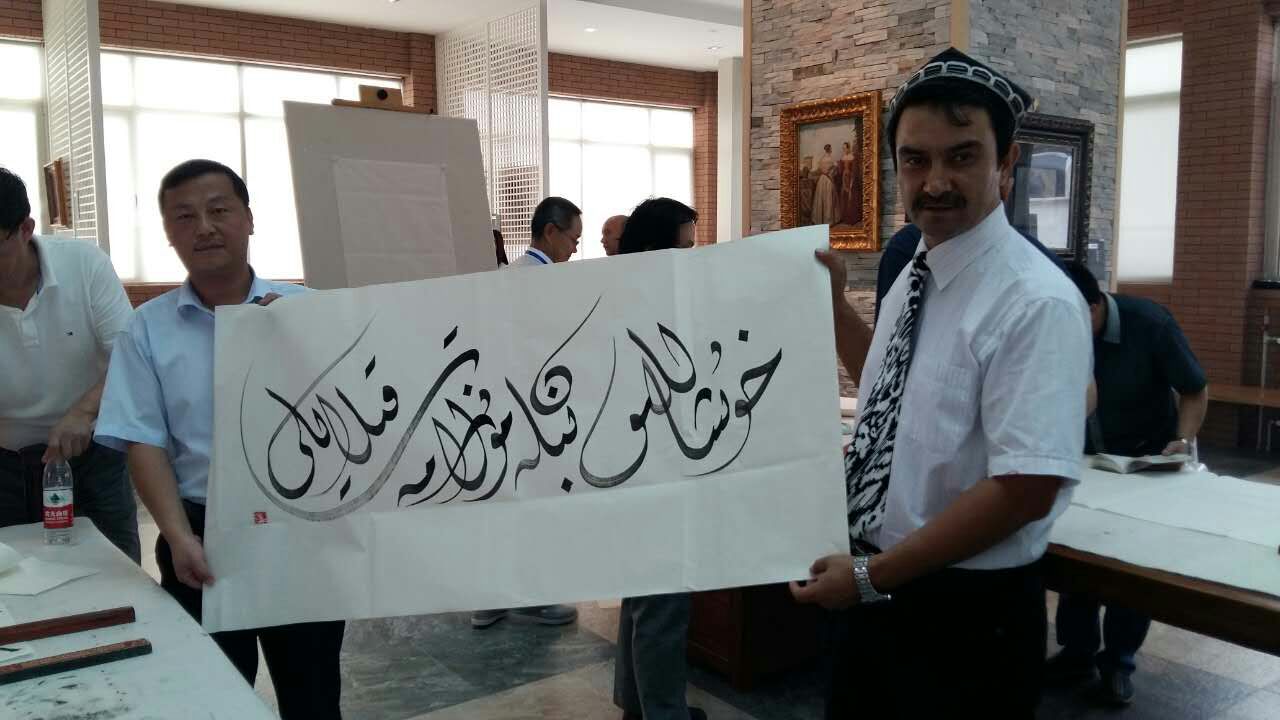 خۇشاللىق بىلەن مۇلازىمەت قىلايلى